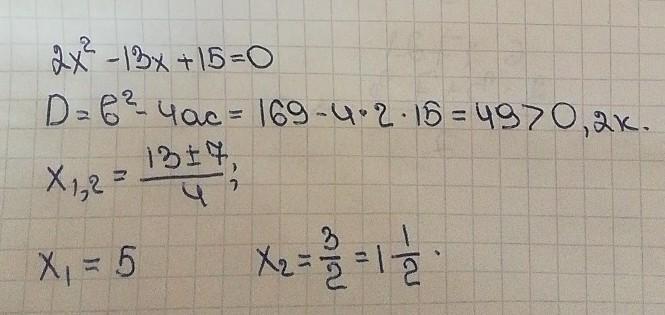 2x² - 13x + 15 = 0
D = b² - 4ac = 169 - 4 · 2 · 15 = 49 > 0, 2к.
x₁,₂ = (13 ± 7)/4;
x₁ = 5 x₂ = 3/2 = 1 1/2.